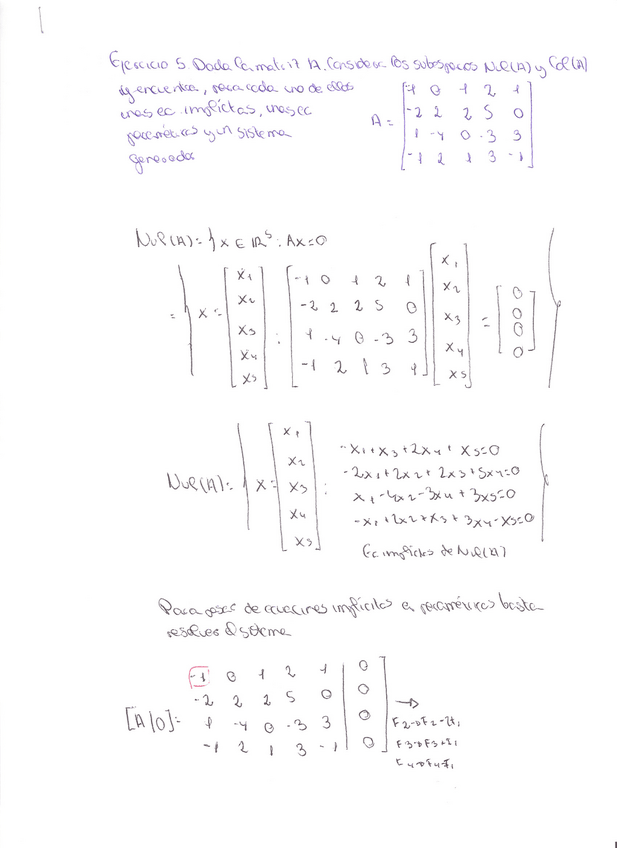 Ejercicio 5. Dada la matriz A. Considera los subespacios Nul(A) y Col(A)
y encuentra, para cada uno de ellos
unas ec. implícitas, unas ec
paramétricas y un sistema
generador
A = [-1 0 1 2 1
-2 2 2 5 0
1 -4 0 -3 3
-1 2 1 3 -1]
Nul(A) = { x ∈ IR⁵ : Ax = 0
= { x = [x1 x2 x3 x4 x5] : [-1 0 1 2 1
-2 2 2 5 0
1 -4 0 -3 3
-1 2 1 3 1] [x1 x2 x3 x4 x5] = [0 0 0 0] }
Nul(A) = { x = [x1 x2 x3 x4 x5] :
-x1 + x3 + 2x4 + x5 = 0
-2x1 + 2x2 + 2x3 + 5x4 = 0
x1 - 4x2 - 3x4 + 3x5 = 0
-x1 + 2x2 + x3 + 3x4 - x5 = 0
Ec implícitas de Nul(A)
Para pasar de ecuaciones implícitas a paramétricas basta
resolver el sistema
[A|0] = -1 0 1 2 1 | 0
-2 2 2 5 0 | 0
1 -4 0 -3 3 | 0
-1 2 1 3 -1 | 0
→
F2→F2-2F1
F3→F3+F1
F4→F4-F1